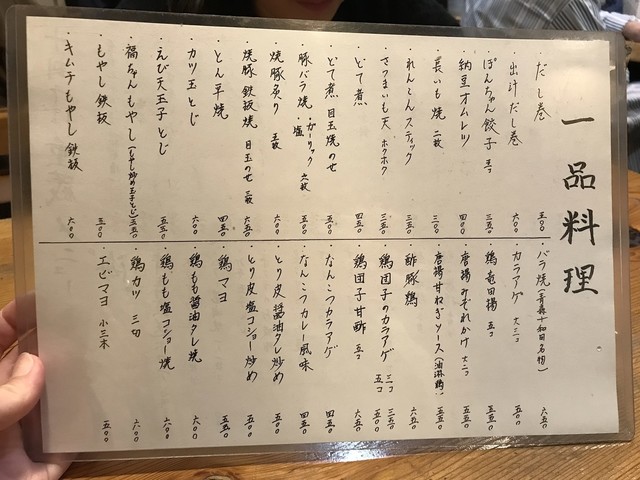 一品料理
・だし巻 五〇〇
・出汁だし巻 六〇〇
・ぽんちゃん餃子 五コ 三五〇
・納豆オムレツ 四〇〇
・長いも焼 二枚 三〇〇
・れんこんスティック 三五〇
・さつまいも天 ホクホク 三五〇
・どて煮 四五〇
・どて煮 目玉焼のせ 五五〇
・豚バラ焼 ・ガーリック ・塩 六枚 五五〇
・焼豚炙り 五枚 五〇〇
・焼豚鉄板焼 目玉のせ 三枚 六五〇
・とん平焼 四五〇
・カツ玉とじ 六〇〇
・えび天玉子とじ 五五〇
・福ちゃんもやし(もやし炒め玉子とじ) 五五〇
・もやし鉄板 五〇〇
・キムチもやし鉄板 六〇〇
・バラ焼(青森十和田名物) 六五〇
・カラアゲ 大三コ 五〇〇
・鶏竜田揚 五コ 五五〇
・唐揚みぞれかけ 大二コ 五五〇
・唐揚甘ねぎソース(油淋鶏) 五五〇
・酢豚鶏 六五〇
・鶏団子のカラアゲ 三コ 三五〇 五コ 五〇〇
・鶏団子甘酢 五コ 六五〇
・なんこつカラアゲ 四五〇
・なんこつカレー風味 四五〇
・とり皮醤油タレ炒め 五〇〇
・とり皮塩コショー炒め 五〇〇
・鶏マヨ 五五〇
・鶏もも醤油タレ焼 六〇〇
・鶏もも塩コショー焼 六〇〇
・鶏カツ 三切 六〇〇
・エビマヨ 小三木 五〇〇